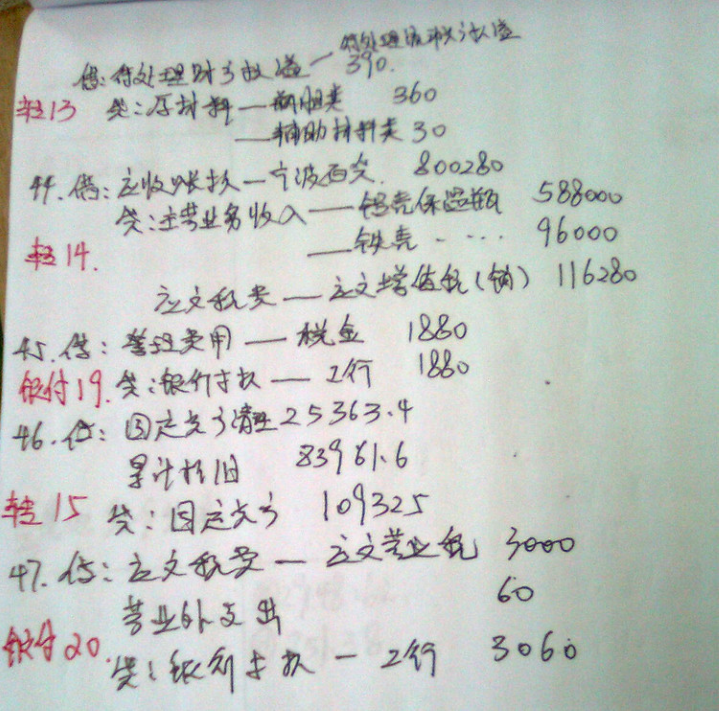 借:待处理财产损溢一待处理流动资产损溢
390.
转13 贷:原材料—瓶胆类 360
—辅助材料类 30
44.借:应收账款—宁波百货. 800280
贷:主营业务收入—铝壳保温瓶 588000
转14. —铁壳 - ‥· 96000
应交税费—应交增值税(销) 116280
45.借:管理费用—税金 1880
银付19.贷:银行存款—工行 1880
46.借:固定资产清理25363.4
累计折旧 83961.6
转15 贷:固定资产 109325
47.借:应交税费—应交营业税 3000
营业外支出 60
银付20.贷:银行存款—工行 3060